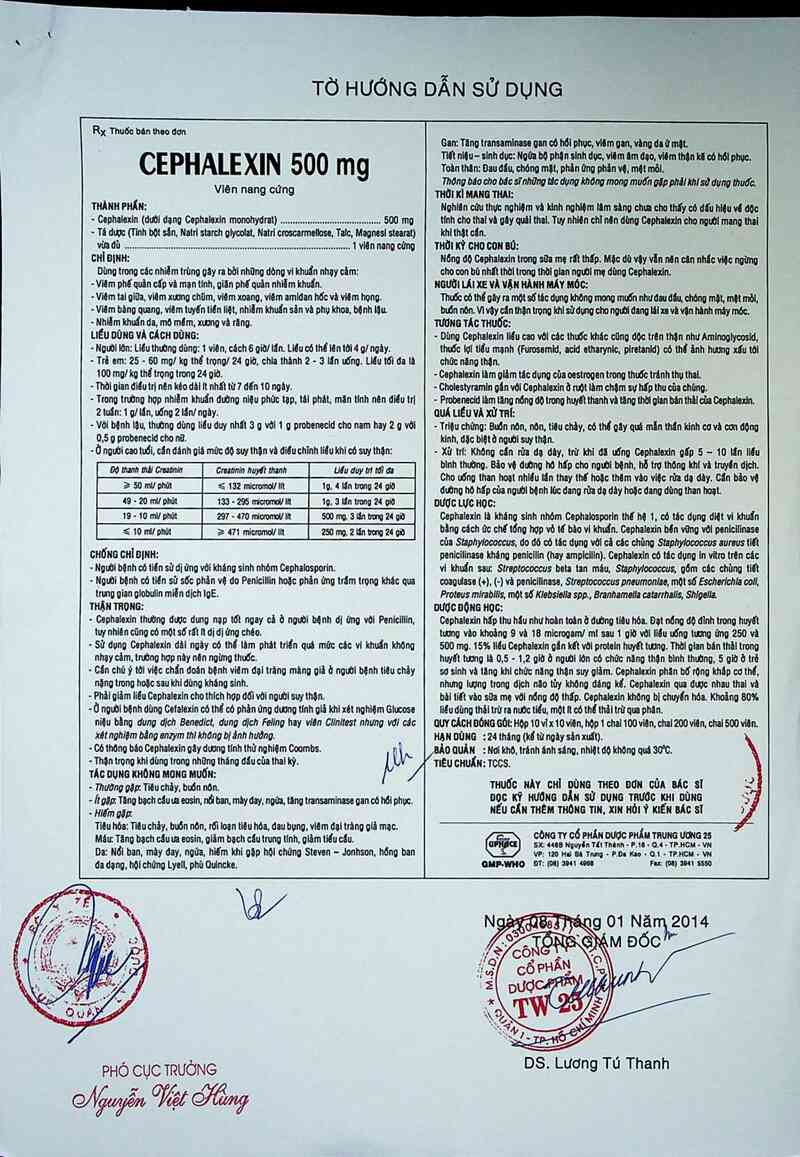 TỜ HƯỚNG DẪN SỬ DỤNG
Rx Thuốc bán theo đơn
CEPHALEXIN 500 mg
Viên nang cứng
THÀNH PHẦN:
- Cephalexin (dưới dạng Cephalexin monohydrat) ........................................ 500 mg
- Tá dược (Tinh bột sắn, Natri starch glycolat, Natri croscarmellose, Talc, Magnesi stearat)
vừa đủ ........................................................................................ 1 viên nang cứng
CHỈ ĐỊNH:
Dùng trong các nhiễm trùng gây ra bởi những dòng vi khuẩn nhạy cảm:
- Viêm phế quản cấp và mạn tính, giãn phế quản nhiễm khuẩn.
- Viêm tai giữa, viêm xương chũm, viêm xoang, viêm amidan hốc và viêm họng.
- Viêm bàng quang, viêm tuyến tiền liệt, nhiễm khuẩn sản và phụ khoa, bệnh lậu.
- Nhiễm khuẩn da, mô mềm, xương và răng.
LIỀU DÙNG VÀ CÁCH DÙNG:
- Người lớn: Liều thường dùng: 1 viên, cách 6 giờ/ lần. Liều có thể lên tới 4 g/ ngày.
- Trẻ em: 25 - 60 mg/ kg thể trọng/ 24 giờ, chia thành 2 - 3 lần uống. Liều tối đa là
100 mg/ kg thể trọng trong 24 giờ.
- Thời gian điều trị nên kéo dài ít nhất từ 7 đến 10 ngày.
- Trong trường hợp nhiễm khuẩn đường niệu phức tạp, tái phát, mãn tính nên điều trị
2 tuần: 1 g/ lần, uống 2 lần/ ngày.
- Với bệnh lậu, thường dùng liều duy nhất 3 g với 1 g probenecid cho nam hay 2 g với
0,5 g probenecid cho nữ.
- Ở người cao tuổi, cần đánh giá mức độ suy thận và điều chỉnh liều khi có suy thận:
Độ thanh thải Creatinin Creatinin huyết thanh Liều duy trì tối đa
≥ 50 ml/ phút ≤ 132 micromol/ lít 1g, 4 lần trong 24 giờ
49 - 20 ml/ phút 133 - 295 micromol/ lít 1g, 3 lần trong 24 giờ
19 - 10 ml/ phút 297 - 470 micromol/ lít 500 mg, 3 lần trong 24 giờ
≤ 10 ml/ phút ≥ 471 micromol/ lít 250 mg, 2 lần trong 24 giờ
CHỐNG CHỈ ĐỊNH:
- Người bệnh có tiền sử dị ứng với kháng sinh nhóm Cephalosporin.
- Người bệnh có tiền sử sốc phản vệ do Penicillin hoặc phản ứng trầm trọng khác qua
trung gian globulin miễn dịch IgE.
THẬN TRỌNG:
- Cephalexin thường được dung nạp tốt ngay cả ở người bệnh dị ứng với Penicillin,
tuy nhiên cũng có một số rất ít dị ứng chéo.
- Sử dụng Cephalexin dài ngày có thể làm phát triển quá mức các vi khuẩn không
nhạy cảm, trường hợp này nên ngừng thuốc.
- Cần chú ý tới việc chẩn đoán bệnh viêm đại tràng màng giả ở người bệnh tiêu chảy
nặng trong hoặc sau khi dùng kháng sinh.
- Phải giảm liều Cephalexin cho thích hợp đối với người suy thận.
- Ở người bệnh dùng Cefalexin có thể có phản ứng dương tính giả khi xét nghiệm Glucose
niệu bằng dung dịch Benedict, dung dịch Feling hay viên Clinitest nhưng với các
xét nghiệm bằng enzym thì không bị ảnh hưởng.
- Có thông báo Cephalexin gây dương tính thử nghiệm Coombs.
- Thận trọng khi dùng trong những tháng đầu của thai kỳ.
TÁC DỤNG KHÔNG MONG MUỐN:
- Thường gặp: Tiêu chảy, buồn nôn.
- Ít gặp: Tăng bạch cầu ưa eosin, nổi ban, mày đay, ngứa, tăng transaminase gan có hồi phục.
- Hiếm gặp:
Tiêu hóa: Tiêu chảy, buồn nôn, rối loạn tiêu hóa, đau bụng, viêm đại tràng giả mạc.
Máu: Tăng bạch cầu ưa eosin, giảm bạch cầu trung tính, giảm tiểu cầu.
Da: Nổi ban, mày đay, ngứa, hiếm khi gặp hội chứng Steven – Jonhson, hồng ban
đa dạng, hội chứng Lyell, phù Quincke.
Gan: Tăng transaminase gan có hồi phục, viêm gan, vàng da ứ mật.
Tiết niệu – sinh dục: Ngứa bộ phận sinh dục, viêm âm đạo, viêm thận kẽ có hồi phục.
Toàn thân: Đau đầu, chóng mặt, phản ứng phản vệ, mệt mỏi.
Thông báo cho bác sĩ những tác dụng không mong muốn gặp phải khi sử dụng thuốc.
THỜI KÌ MANG THAI:
Nghiên cứu thực nghiệm và kinh nghiệm lâm sàng chưa cho thấy có dấu hiệu về độc
tính cho thai và gây quái thai. Tuy nhiên chỉ nên dùng Cephalexin cho người mang thai
khi thật cần.
THỜI KỲ CHO CON BÚ:
Nồng độ Cephalexin trong sữa mẹ rất thấp. Mặc dù vậy vẫn nên cân nhắc việc ngừng
cho con bú nhất thời trong thời gian người mẹ dùng Cephalexin.
NGƯỜI LÁI XE VÀ VẬN HÀNH MÁY MÓC:
Thuốc có thể gây ra một số tác dụng không mong muốn như đau đầu, chóng mặt, mệt mỏi,
buồn nôn. Vì vậy cẩn thận trọng khi sử dụng cho người đang lái xe và vận hành máy móc.
TƯƠNG TÁC THUỐC:
- Dùng Cephalexin liều cao với các thuốc khác cũng độc trên thận như Aminoglycosid,
thuốc lợi tiểu mạnh (Furosemid, acid etharynic, piretanid) có thể ảnh hương xấu tới
chức năng thận.
- Cephalexin làm giảm tác dụng của oestrogen trong thuốc tránh thụ thai.
- Cholestyramin gắn với Cephalexin ở ruột làm chậm sự hấp thu của chúng.
- Probenecid làm tăng nồng độ trong huyết thanh và tăng thời gian bán thải của Cephalexin.
QUÁ LIỀU VÀ XỬ TRÍ:
- Triệu chứng: Buồn nôn, nôn, tiêu chảy, có thể gây quá mẫn thần kinh cơ và cơn động
kinh, đặc biệt ở người suy thận.
- Xử trí: Không cần rửa dạ dày, trừ khi đã uống Cephalexin gấp 5 – 10 lần liều
bình thường. Bảo vệ đường hô hấp cho người bệnh, hỗ trợ thông khí và truyền dịch.
Cho uống than hoạt nhiều lần thay thế hoặc thêm vào việc rửa dạ dày. Cần bảo vệ
đường hô hấp của người bệnh lúc đang rửa dạ dày hoặc đang dùng than hoạt.
DƯỢC LỰC HỌC:
Cephalexin là kháng sinh nhóm Cephalosporin thế hệ 1, có tác dụng diệt vi khuẩn
bằng cách ức chế tổng hợp vỏ tế bào vi khuẩn. Cephalexin bền vững với penicilinase
của Staphylococcus, do đó có tác dụng với cả các chủng Staphylococcus aureus tiết
penicilinase kháng penicilin (hay ampicilin). Cephalexin có tác dụng in vitro trên các
vi khuẩn sau: Streptococcus beta tan máu, Staphylococcus, gồm các chủng tiết
coagulase (+), (-) và penicilinase, Streptococcus pneumoniae, một số Escherichia coli,
Proteus mirabilis, một số Klebsiella spp., Branhamella catarrhalis, Shigella.
DƯỢC ĐỘNG HỌC:
Cephalexin hấp thu hầu như hoàn toàn ở đường tiêu hóa. Đạt nồng độ đỉnh trong huyết
tương vào khoảng 9 và 18 microgam/ ml sau 1 giờ với liều uống tương ứng 250 và
500 mg. 15% liều Cephalexin gắn kết với protein huyết tương. Thời gian bán thải trong
huyết tương là 0,5 - 1,2 giờ ở người lớn có chức năng thận bình thường, 5 giờ ở trẻ
sơ sinh và tăng khi chức năng thận suy giảm. Cephalexin phân bố rộng khắp cơ thể,
nhưng lượng trong dịch não tủy không đáng kể. Cephalexin qua được nhau thai và
bài tiết vào sữa mẹ với nồng độ thấp. Cephalexin không bị chuyển hóa. Khoảng 80%
liều dùng thải trừ ra nước tiểu, một ít có thể thải trừ qua phân.
QUY CÁCH ĐÓNG GÓI: Hộp 10 vỉ x 10 viên, hộp 1 chai 100 viên, chai 200 viên, chai 500 viên.
HẠN DÙNG : 24 tháng (kể từ ngày sản xuất).
BẢO QUẢN : Nơi khô, tránh ánh sáng, nhiệt độ không quá 30°C.
TIÊU CHUẨN: TCCS.
THUỐC NÀY CHỈ DÙNG THEO ĐƠN CỦA BÁC SĨ
ĐỌC KỸ HƯỚNG DẪN SỬ DỤNG TRƯỚC KHI DÙNG
NẾU CẦN THÊM THÔNG TIN, XIN HỎI Ý KIẾN BÁC SĨ
GMP-WHO
CÔNG TY CỔ PHẦN DƯỢC PHẨM TRUNG ƯƠNG 25
SX: 448B Nguyễn Tất Thành - P.18 - Q.4 - TP.HCM - VN
VP: 120 Hai Bà Trưng - P.Đa Kao - Q.1 - TP.HCM - VN
ĐT: (08) 3941 4968 Fax: (08) 3941 5550
Ngày 08 Tháng 01 Năm 2014
TỔNG GIÁM ĐỐC
CÔNG TY
CỔ PHẦN
DƯỢC PHẨM
TW 25
QUẬN 1 - TP. HỒ CHÍ MINH
DS. Lương Tú Thanh
BỘ Y TẾ
PHÓ CỤC TRƯỞNG
Nguyễn Việt Hùng